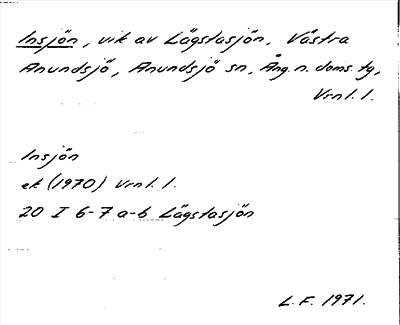 Insjön, vik av Lägstasjön, Västra
Anundsjö, Anundsjö sn, Ång. n. doms. tg,
Vrnl. l.
Insjön
ek (1970) Vrnl. l.
20 I 6-7 a-b Lägstasjön
L.F. 1971.